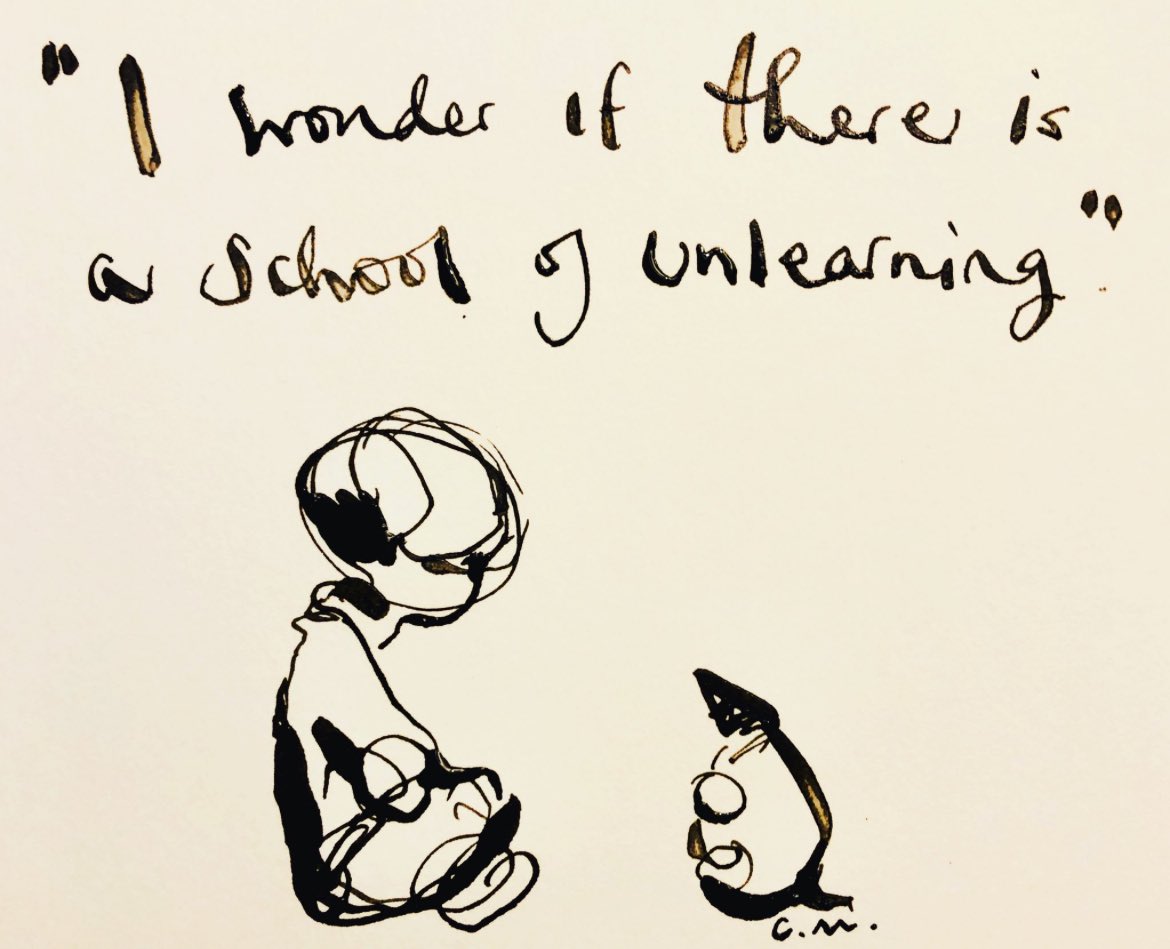 "I wonder if there is
a school of unlearning"
c.m.